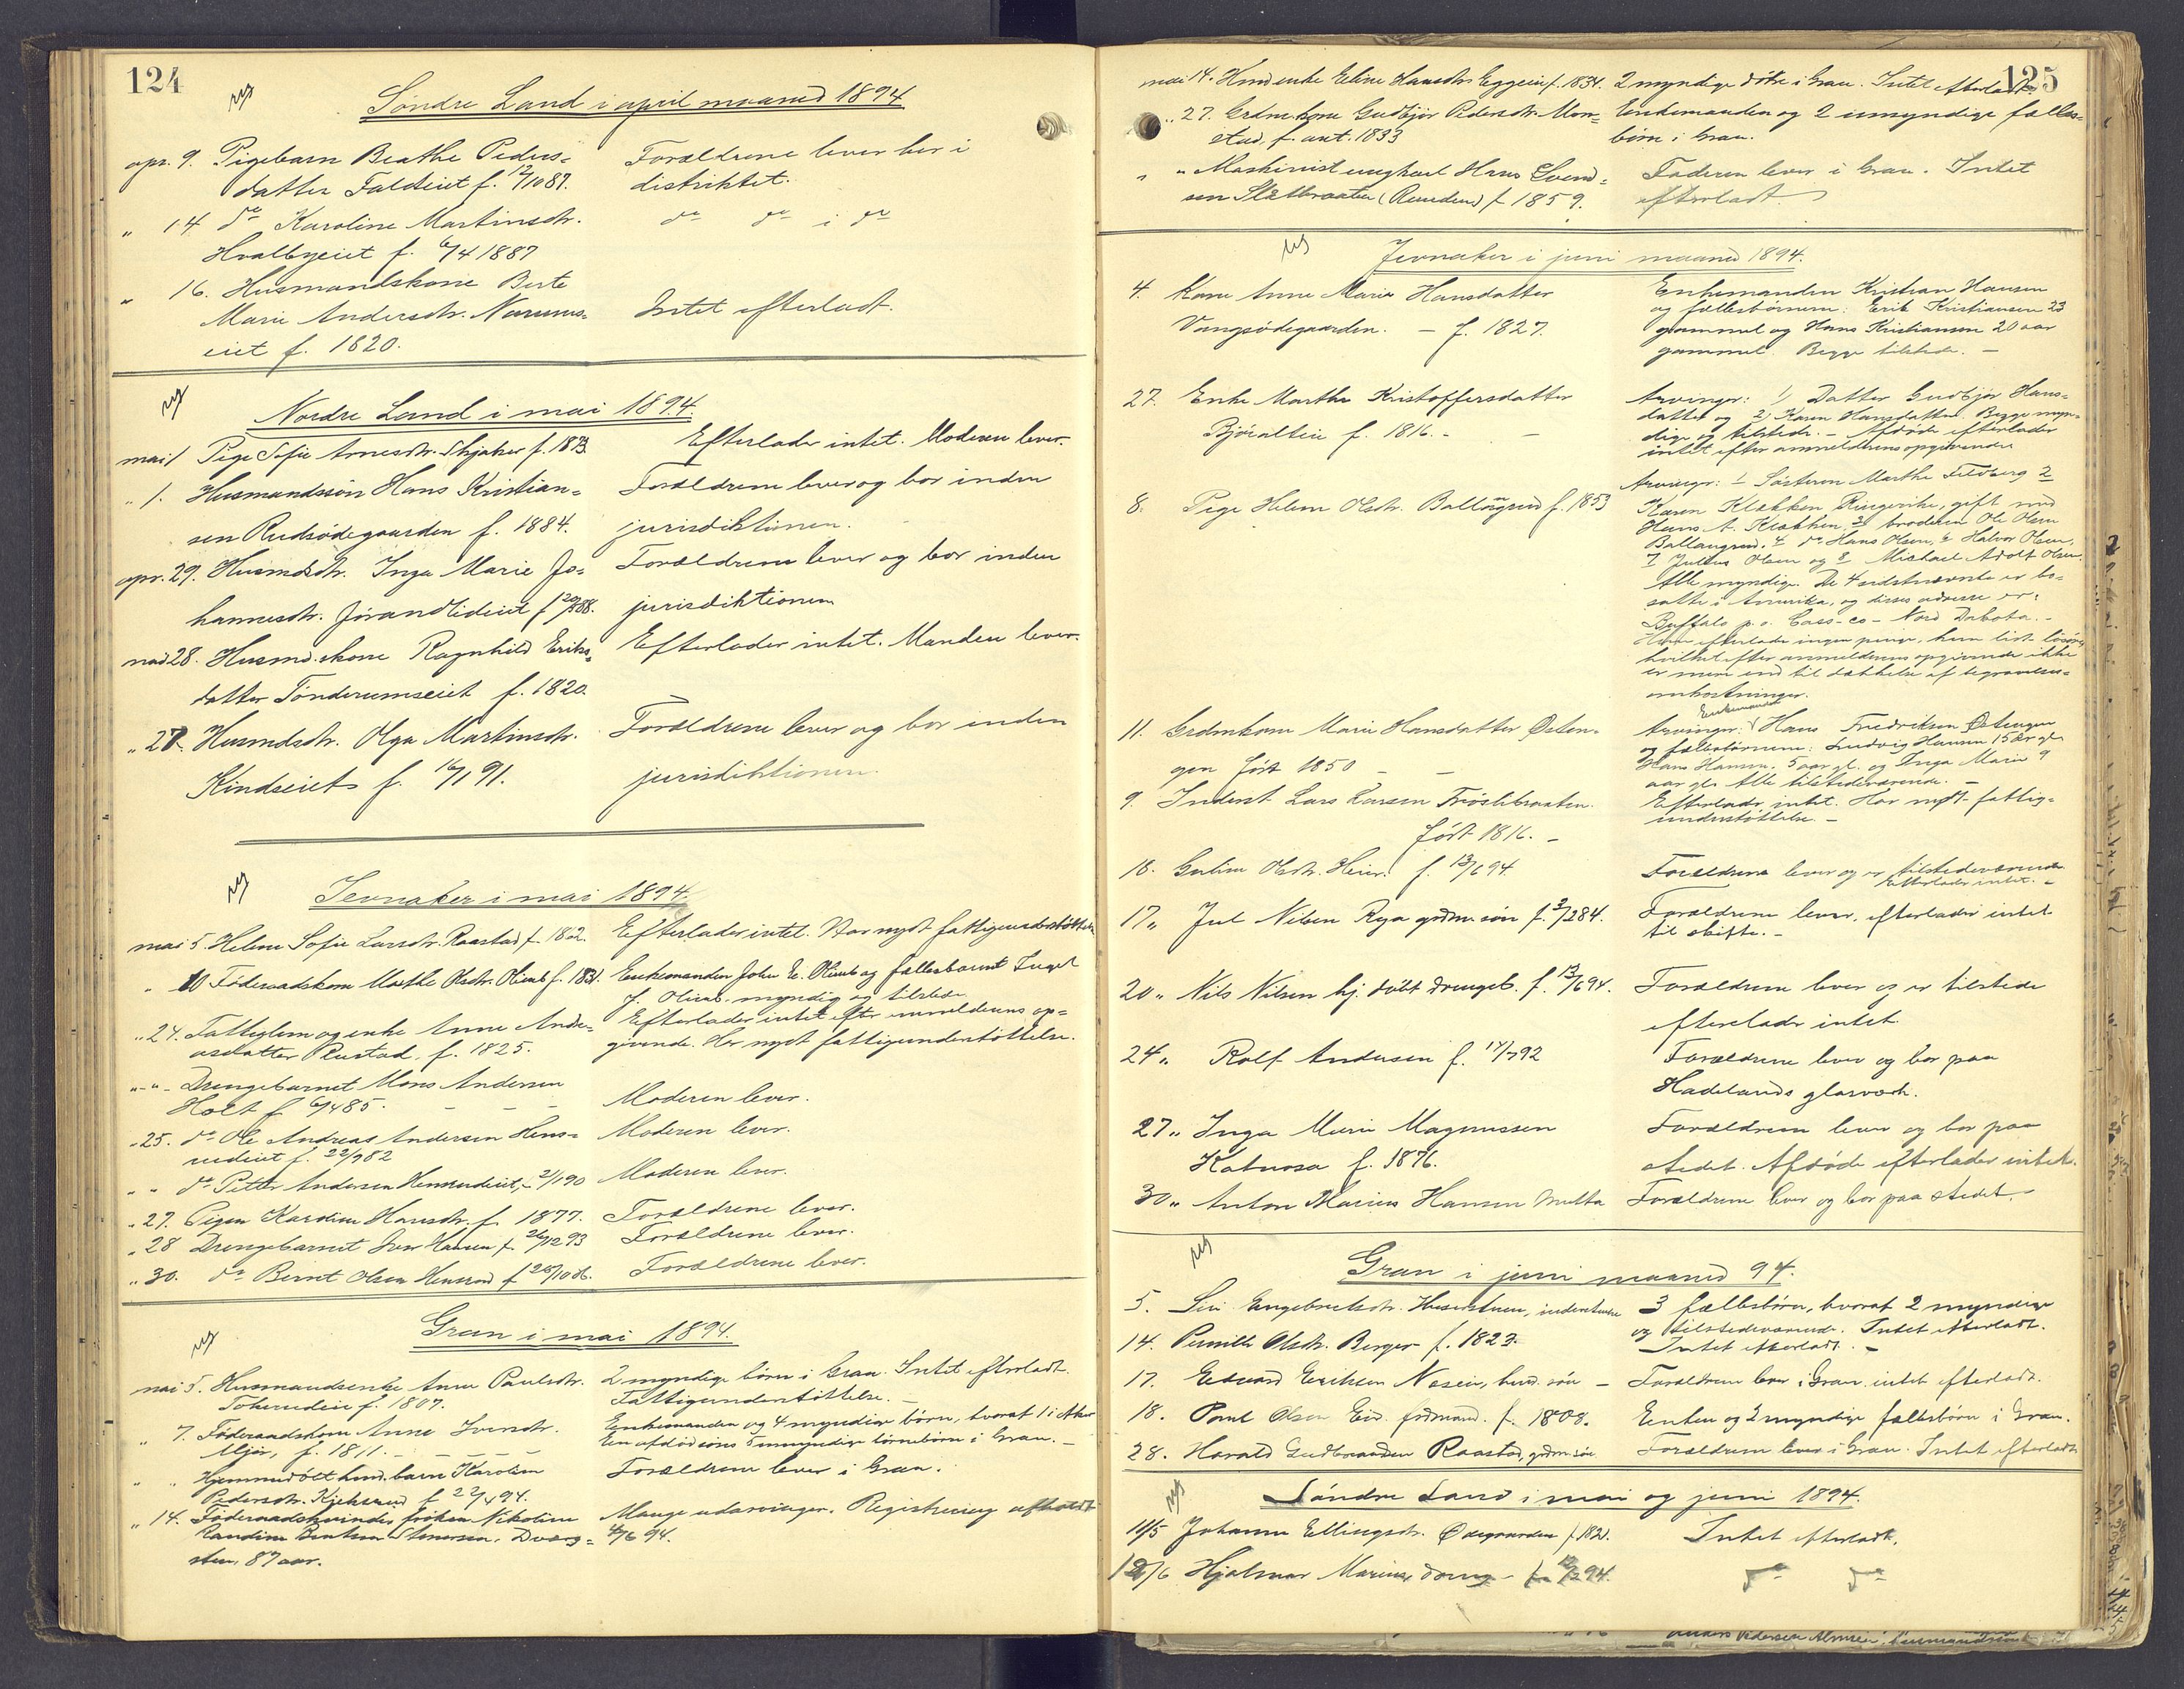 124
Søndre Land i april maaned 1894
apr. 9. Pigebarn Beathe Peders=
datter Faldseiet f. 12/10 87.
Forældrene lever her i
distriktet.
" 14 do Karoline Martinsdtr.
Hvalbyeiet f. 6/4 1887
do do i do
" 16. Husmandskone Berte
Marie Andersdtr. Narums=
eiet f. 1820.
Intet efterladt.
Nordre Land i mai 1894.
mai 1 Pige Sofie Arnesdtr. Skjaker f. 1873.
Efterlader intet. Moderen lever.
" 1. Husmandssøn Hans Kristian=
sen Rudsødegaarden f. 1884.
Forældrene lever og bor inden
jurisdiktionen.
apr. 29. Husmdsdtr. Inga Marie Jo=
hannesdtr. Jørandlideiet f. 20/1 88.
Forældrene lever og bor inden
jurisdiktionen
mai 28. Husmd.skone Ragnhild Eriks=
datter Tønderumseiet f. 1820.
Efterlader intet. Manden lever.
" 27. Husmdsdtr. Olga Martinsdtr.
Kindseiet f. 16/1 91.
Forældrene lever og bor inden
jurisdiktionen.
Jevnaker i mai 1894.
mai 5. Helene Sofie Larsdtr. Raastad f. 182.
Efterlader intet. Har nydt fattigunderstøttelse
" 10 Føderaadskone Marthe Olsdtr. Olimb f. 1831.
Enkemanden John E. Olimb og fællesbarnet Inget
J. Olimb. myndig og tilstede.
" 24. Fattiglem og enke Anne Ande=
asdatter Rustad, f. 1825.
Efterlader intet efter anmelderens op=
givende. Har nydt fattigunderstøttelse.
" - " - Drengebarnet Mons Andersen
Holt f. 6/4 85.
Moderen lever.
" 25. do Ole Andreas Andersen Hens=
rudeiet f. 22/9 82
Moderen lever.
" " do Petter Andersen Hensrudeiet, 21/1 90
Moderen lever.
" 27. Pigen Karoline Hansdtr. f. 1877.
Forældrene lever.
" 28 Drengebarnet Iver Hansen f. 26/12 93
Forældrene lever.
" 30. do Bernt Olsen Hensrud f. 25/10 86.
Forældrene lever.
Gran i mai 1894.
mai 5. Husmandsenke Anne Paulsdtr.
Tokerudeie f. 1807.
2 myndige børn i Gran. Intet efterladt.
Fattigunderstøttelse.
" 7. Føderaadskone Anne Iversdtr.
Mjør, f. 1811.
Enkemanden og 4 myndige børn, hvoraf 1 i Aker
En afdød søns 5 umyndige børnebørn i Gran.
" " Hjemmedøbt husd.barn Karoline
Pedersdtr. Kjeksrud f. 22/4 94.
Forældrene lever i Gran.
" 14. Føderaadskvinde, frøken Nikoline
Randine Bentsen Dværg=
sten, 87 aar.
Mange udarvinger. Registrering afholdt
4/6 94.
125
mai 14. Husd.enke Eline Hansdtr. Eggeeie f. 1834.
2 myndige døtre i Gran. Intet efterladt.
" 27. Grdm.kone Gudbjør Pedersdtr. Mon=
stad, f. ant. 1833
Enkemanden og 2 umyndige fælles=
børn i Gran.
" " Maskinist ungkarl Hans Svend=
sen Slætbraaten (Renden) f. 1859.
Faderen lever i Gran. Intet
efterladt.
Jevnaker i juni maaned 1894.
4. Kone Anne Marie Hansdatter
Vangsødegaarden. - f. 1827.
Enkemanden Kristian Hansen
og fællesbørnene: Erik Kristiansen 23
gammel og Hans Kristiansen 20 aar
gammel. Begge tilstede. -
27. Enke Marthe Kristoffersdatter
Bjøralteie f. 1816. -
Arvinger: 1) Datter Gudbjør Hans=
datter og 2) Karen Hansdatter. Begge myn=
dige og tilstede. - Afdøde efterlader
intet efter anmelderens opgivende
8. Pige Helene Olsdtr. Ballangrud f. 1853
Arvinger: 1 Søsteren Marthe Feldberg 2
Karen Klækken Ringerike, gift med
Hans A. Klækken, 3 broderen Ole Olsen
Ballangrud, 4 do Hans Olsen, 6 Halvor Olsen,
7 Julius Olsen og 8 Michael Adolf Olsen.
Alle myndige. De 4 sidstnævnte er bo=
satte i Amerika, og disses adresse er:
Buffalo p.o. Cass-co- Nord Dakota. -
Hun efterlader ingen penge, kun lidt løsøre,
hvilket efter anmelderens opgivende ikke
er mere end til dækkelse af begravelses=
omkostninger.
11. Grdmkone Marie Hansdatter Østen=
gen født 1850
Enkemand
Arvinger: Hans Fredriksen Østengen
og fællesbørnene: Ludvig Hansen 15 aar gl.
Hans Hansen, 5 aar gl. og Inga Marie 9
aar gl. Alle tilstedeværende. -
9. Inderst Lars Larsen Frøslibraaten.
født 1816. -
Efterlader intet. Har nydt fattig=
understøttelse. -
16. Guline Olsdtr. Heier. f. 13/6 94.
Forældrene lever og er tilstedeværende
Efterlader intet. -
17 " Jul Nilsen Rya grdm.søn f. 3/2 84.
Forældrene lever, efterlader intet
til skifte. -
20 " Nils Nilsen hj. døbt drengeb. f. 13/6 94.
Forældrene lever og er tilstede
efterlader intet.
24 " Rolf Andersen f. 17/7 92
Forældrene lever og bor paa
Hadelands glasværk.
27 " Inga Marie Magnussen
Katnosa f. 1876.
Forældrene lever og bor paa
stedet. Afdøde efterlader intet.
30 " Anton Marius Hansen Mutta
Forældrene lever og bor paa stedet. -
Gran i juni maaned 94.
5. Siri Engebretsdtr. Huserstuen, inderstenke
3 fællesbørn, hvoraf 2 myndige
og tilstedeværende. Intet efterladt.
14. Pernille Olsdtr. Berger f. 1823.
Intet efterladt. -
17. Edvard Eriksen Noseie, husd. søn -
Forældrene lever i Gran, intet efterladt.
18. Poul Olsen Eid. fødmand. f. 1808.
Enken og 2 myndige fællesbørn i Gran.
28. Harald Gudbrandsen Raastad, grdm. søn
Forældrene lever i Gran. Intet efterladt
Søndre Land i mai og juni 1894.
11/5 Johanne Ellingsdtr. Ødegaarden f. 1821.
Intet efterladt.
12/6 Hjalmar Marius, dreng - f. 12/2 94.
do do